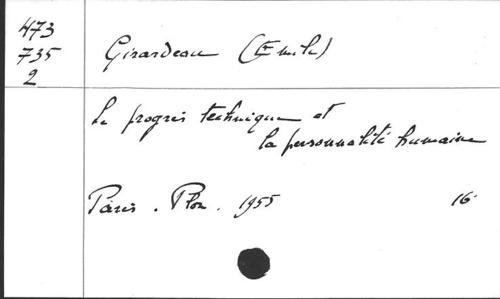 473
735
2
Girardeau (Emile)
Le progrès technique et
la personnalité humaine
Paris. Plon. 1955 16°